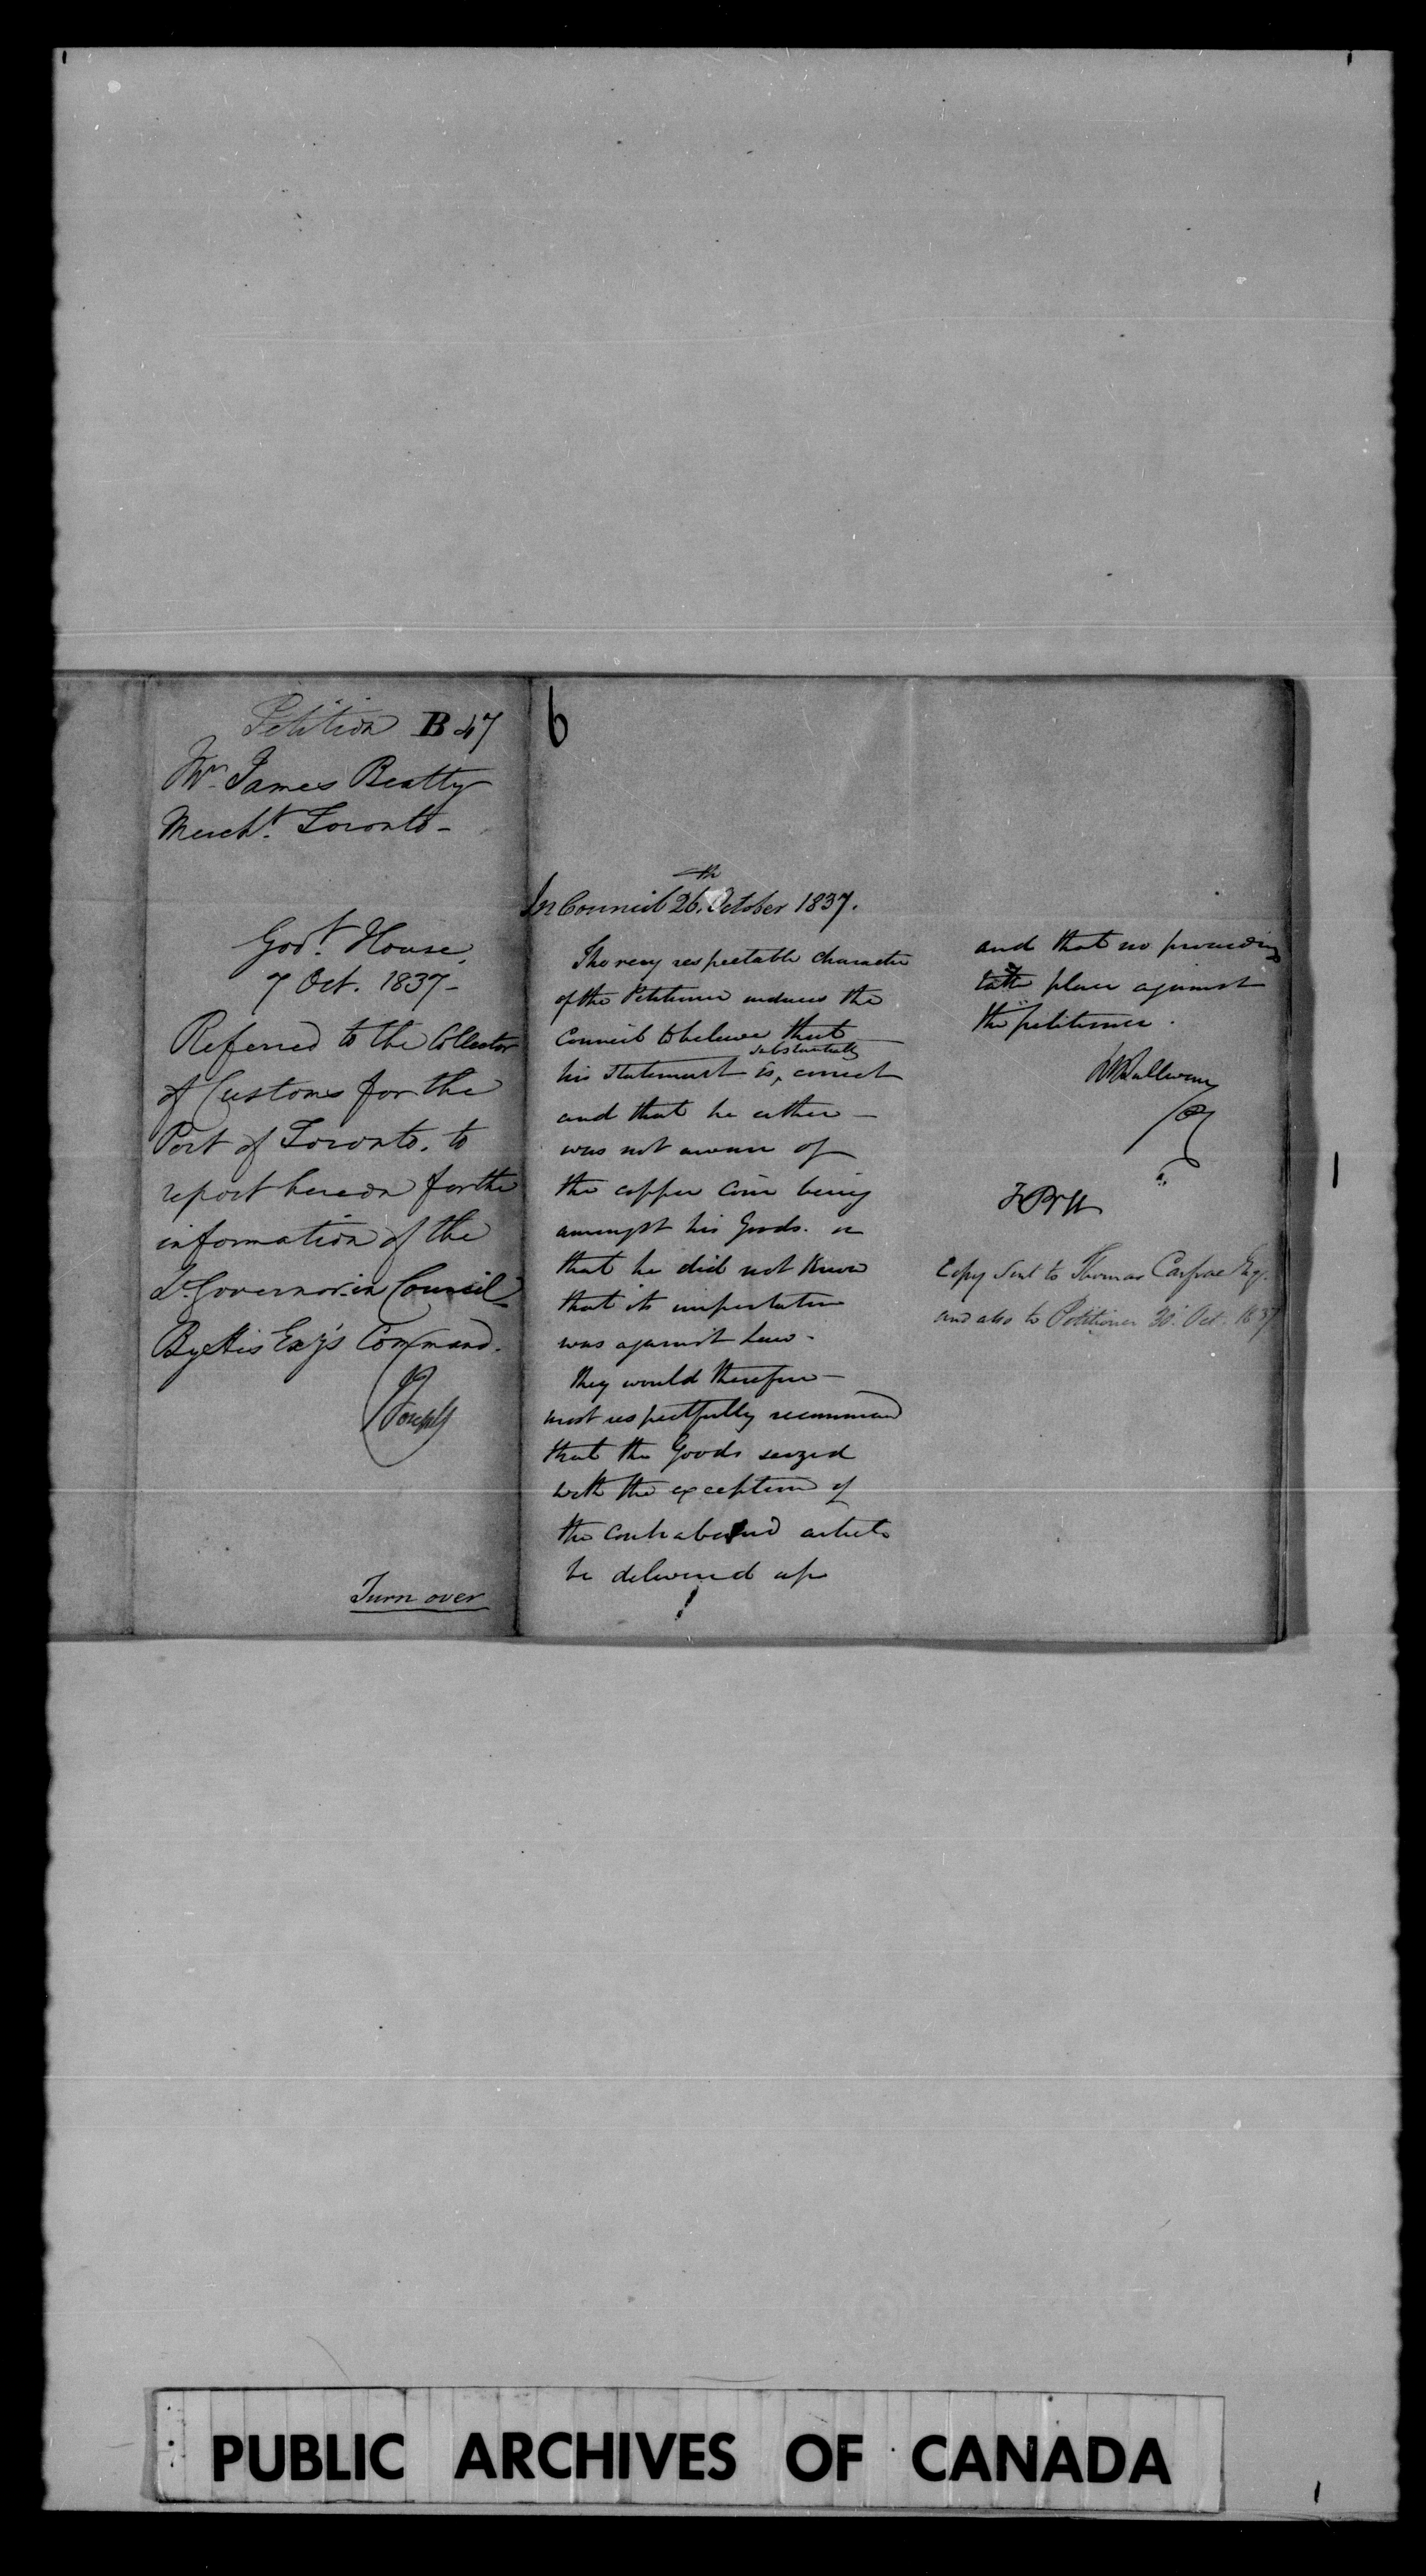 Petition B 47
Mr. James Beatty
Mercht. Toronto -
Govt. House,
7 Oct. 1837-
Referred to the Collector
of Customs for the
Port of Toronto, to
report hereon for the
information of the
Lt. Governor in Council
By His Exy's Command.
J Joseph
Turn over
6
In Council 26th October 1837.
The very respectable character
of the Petitioner induces the
Council to believe that
his statement is substantially correct
and that he either -
was not aware of
the copper coin being
amongst his Goods. or
that he did not know
that its importation
was against Law -
They would therefore -
most respectfully recommend
that the Goods seized
with the exception of
the contraband article
be delivered up
and that no proceeding
take place against
the petitioner.
RBSullivan
PC
FBH
Copy sent to Thomas Carfrae Esq.
and also to Petitioner 30 Oct. 1837
PUBLIC ARCHIVES OF CANADA